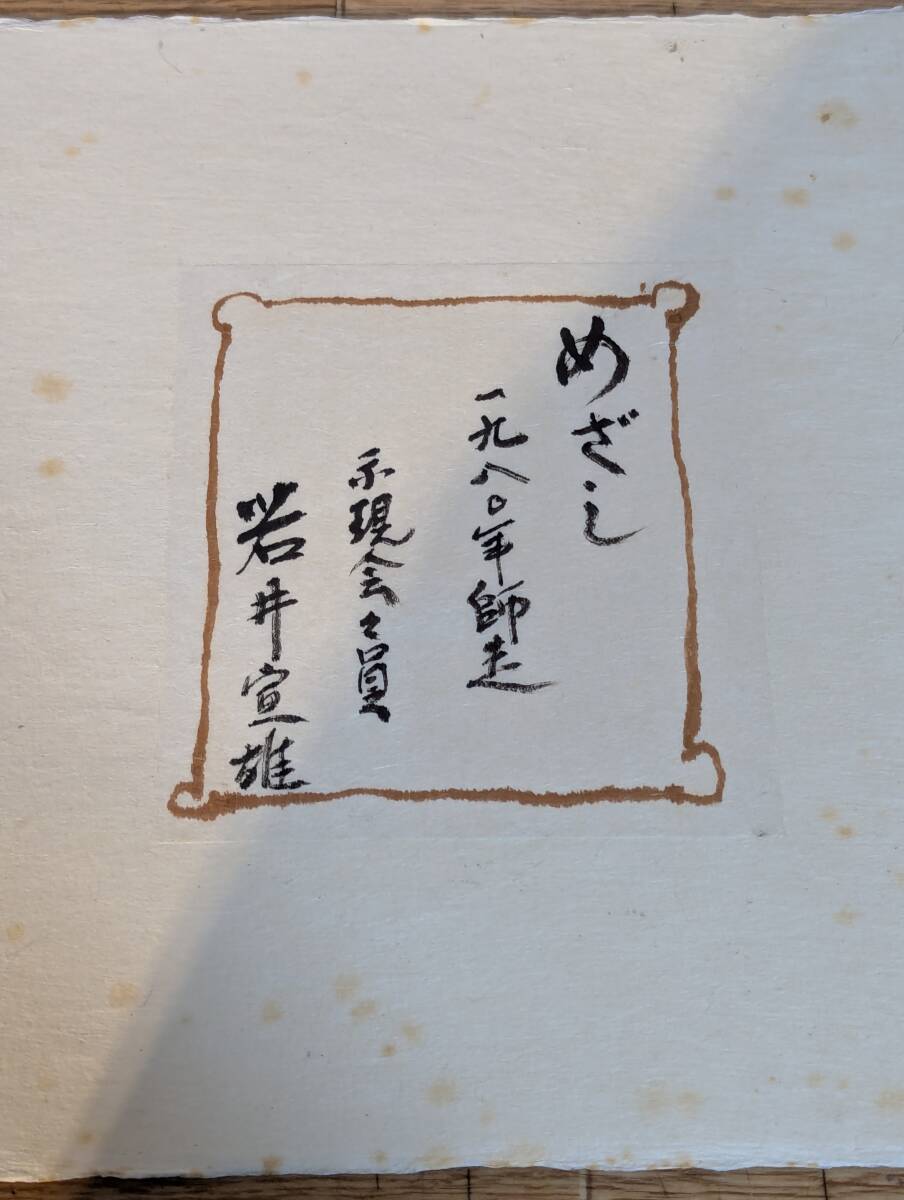 めざし
一九八〇年師走
示現会々員
岩井宣雄